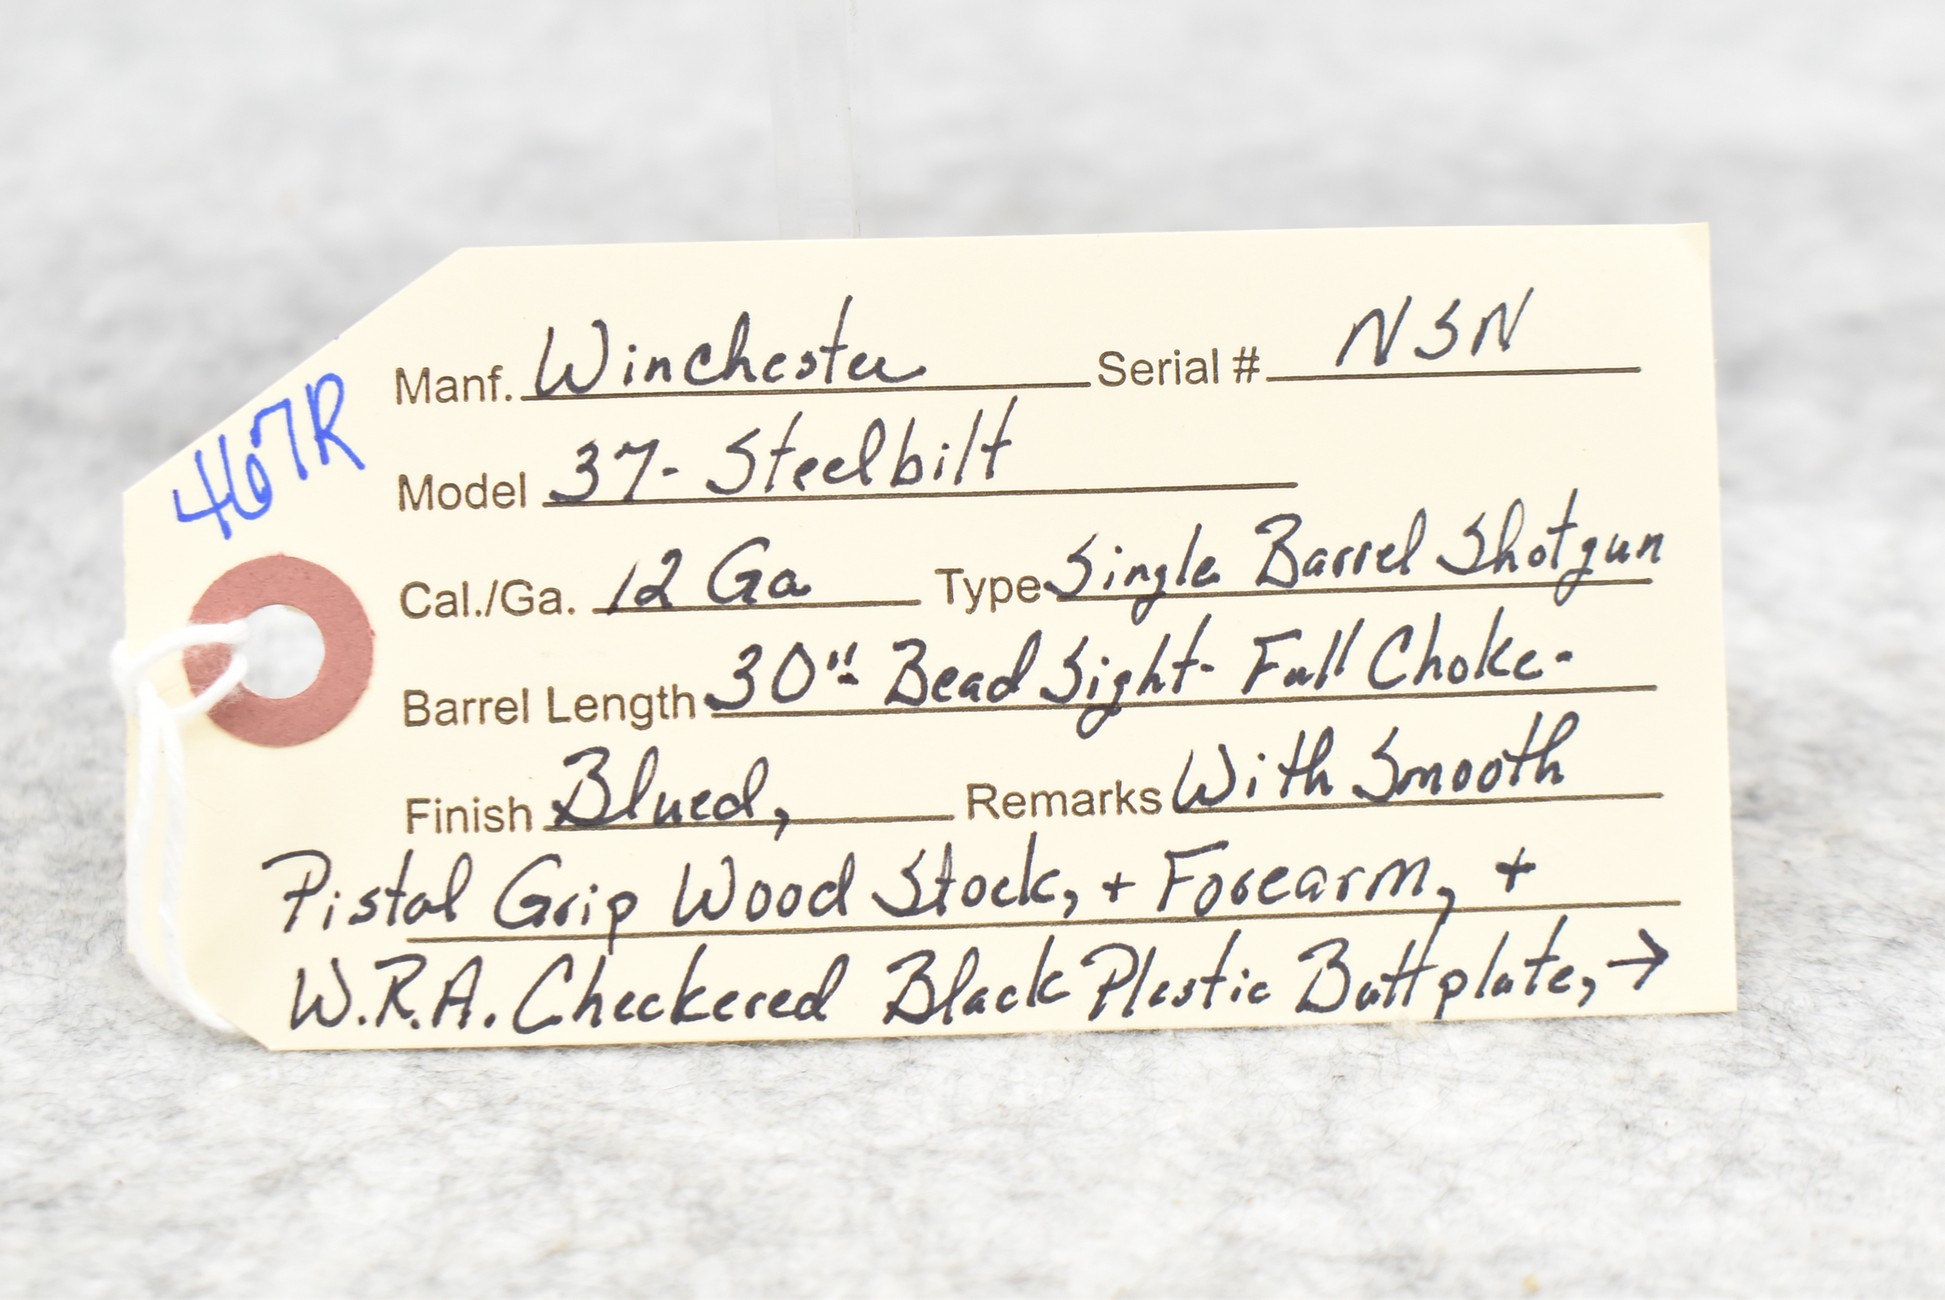 467R
Manf. Winchester Serial # NSN
Model 37- Steelbilt
Cal./Ga. 12 Ga Type Single Barrel Shotgun
Barrel Length 30"- Bead Sight- Full Choke-
Finish Blued, Remarks With Smooth
Pistol Grip Wood Stock, + Forearm, +
W.R.A. Checkered Black Plastic Buttplate, →